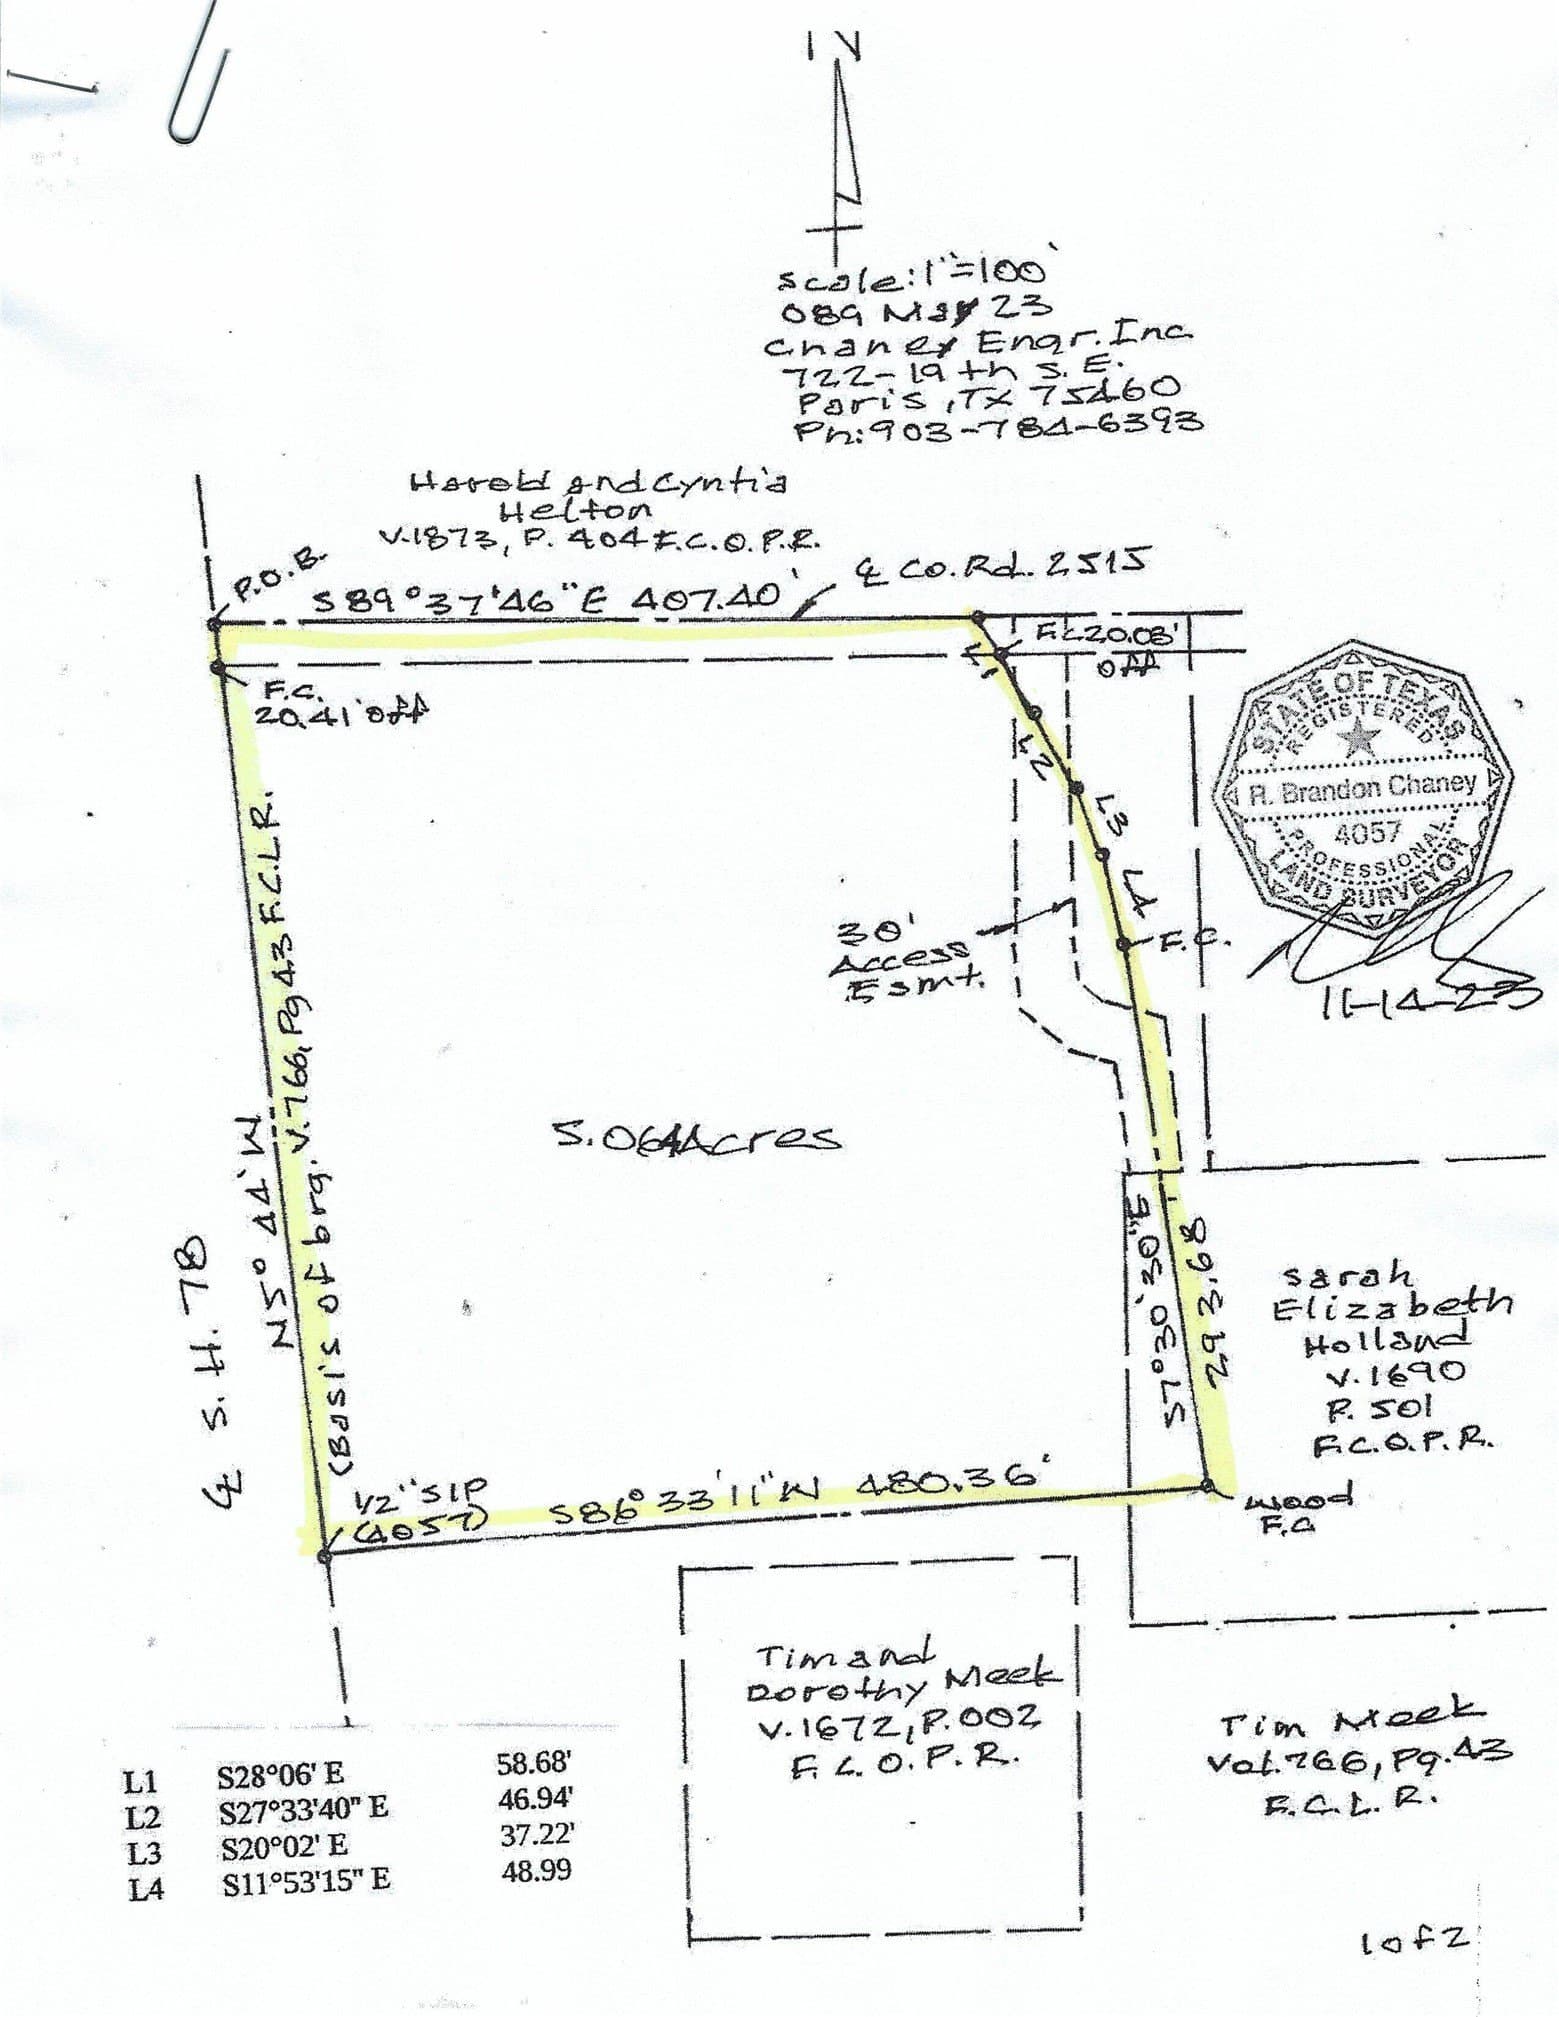 N
Scale: 1"=100'
089 May 23
Chaney Engr. Inc.
722-19th S.E.
Paris, TX 75460
Ph: 903-784-6393
Harold and Cyntia
Helton
V.1873, P. 404 F.C.O.P.R.
P.O.B.
S89°37'46"E 407.40'
℄ Co. Rd. 2515
F.C. 20.03'
off
F.C.
20.41' off
L1
L2
L3
L4
F.C.
30'
Access
Esmt.
STATE OF TEXAS
REGISTERED
R. Brandon Chaney
4057
PROFESSIONAL
LAND SURVEYOR
11-14-23
5.064 Acres
℄ S.H. 78
N5°44'W
(Basis of brg. V.766, Pg 43 F.C.L.R.
S7°30'50"E
243.68'
Sarah
Elizabeth
Holland
V.1690
P. 501
F.C.O.P.R.
1/2" SIP
(4057)
S86°33'11"W 480.36'
Wood
F.C.
Tim and
Dorothy Meek
V.1672, P.002
F.C.O.P.R.
Tim Meek
Vol.766, Pg.43
F.C.L.R.
L1 S28°06' E 58.68'
L2 S27°33'40" E 46.94'
L3 S20°02' E 37.22'
L4 S11°53'15" E 48.99
1 of 2